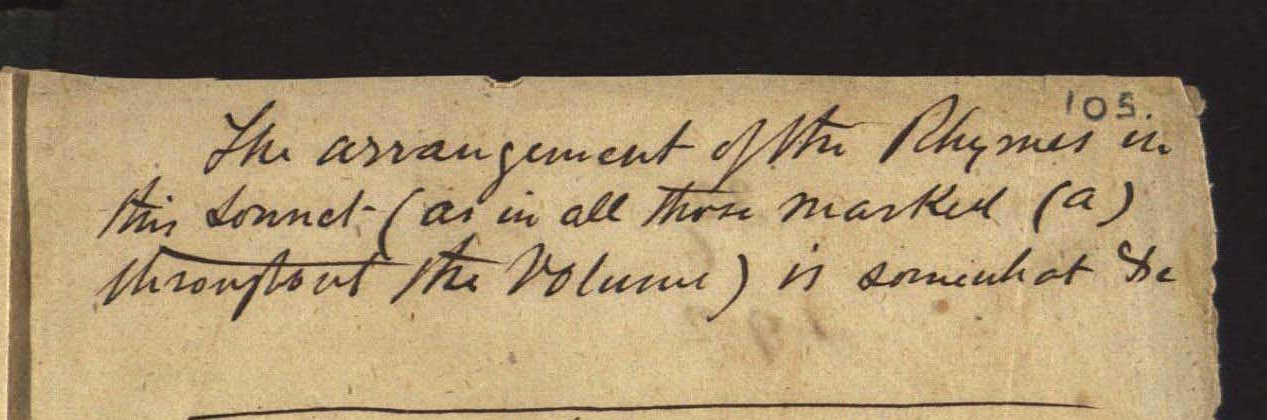 105.
The arrangement of the Rhymes in
this Sonnet (as in all those marked (a)
throughout the Volume) is somewhat &c